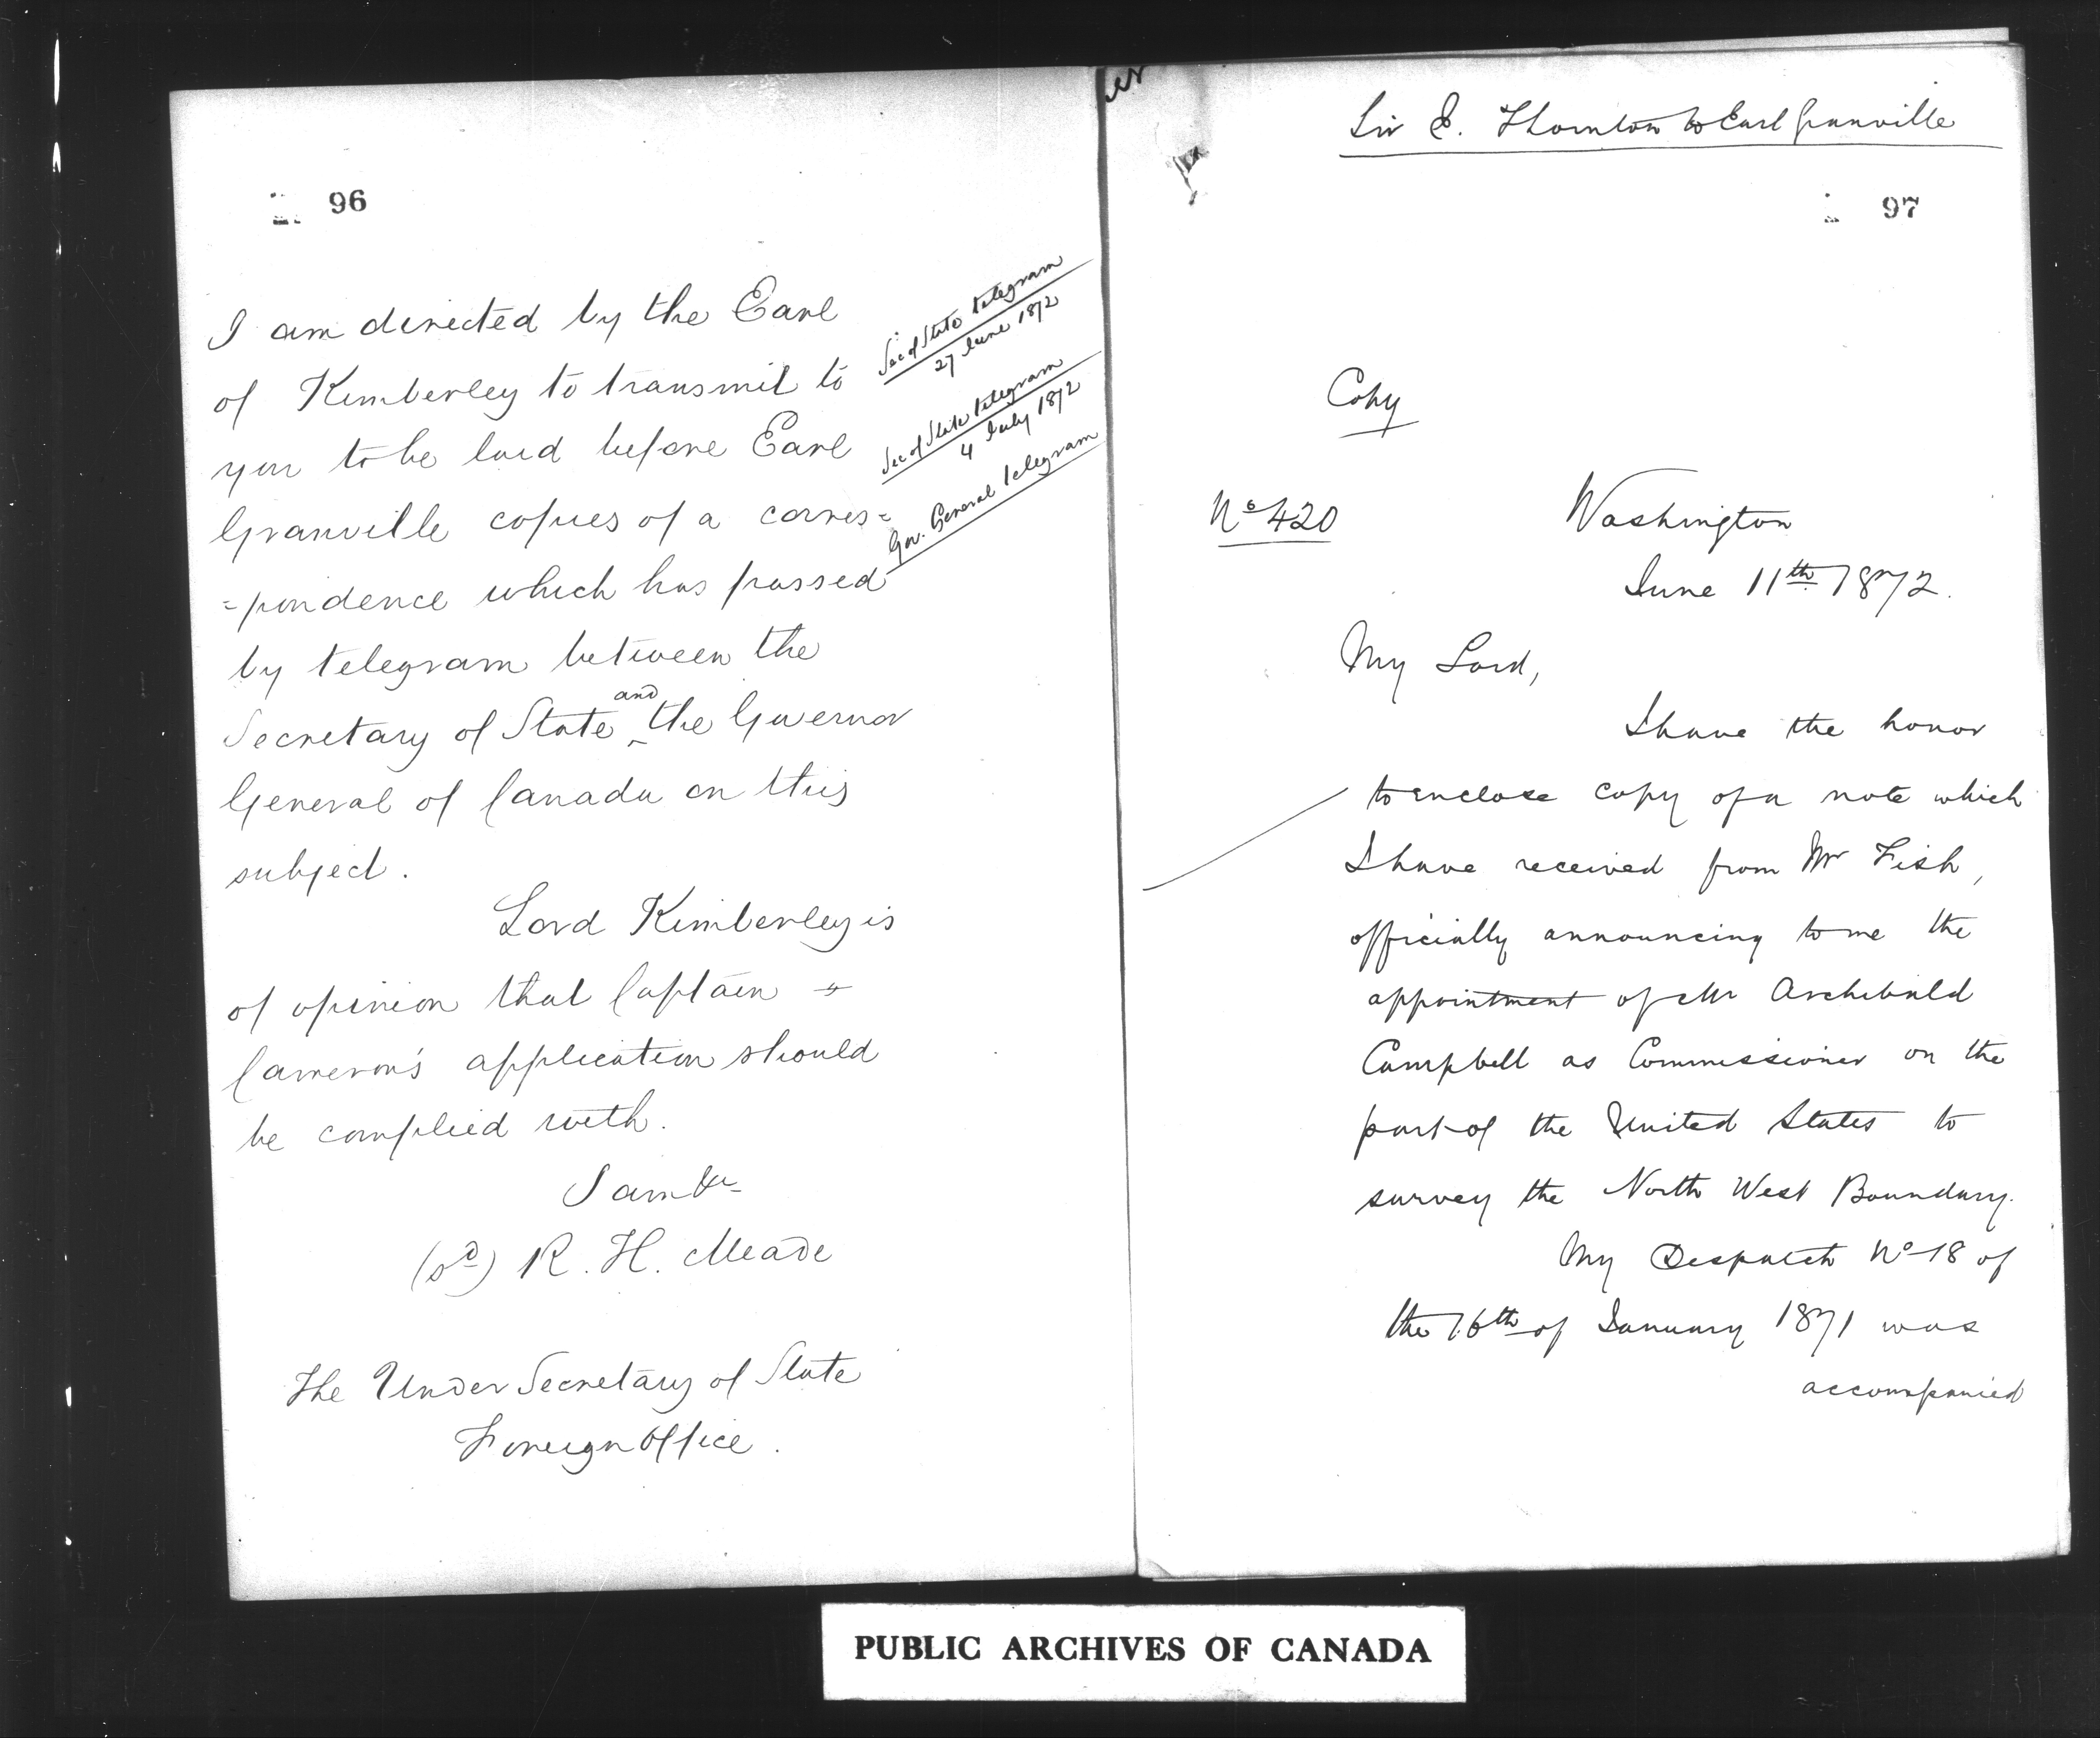 96
I am directed by the Earl
of Kimberley to transmit to
you to be laid before Earl
Granville copies of a corres=
=pondence which has passed
by telegram between the
Secretary of State and the Governor
General of Canada on this
subject.
Sec of State telegram
27 June 1872
Sec of State telegram
4 July 1872
Gov. General telegram
Lord Kimberley is
of opinion that Captain
Cameron's application should
be complied with.
I am &c
(sd) R. H. Meade
The Under Secretary of State
Foreign Office.
Sir E. Thornton to Earl Granville
97
Copy
No 420
Washington
June 11th 1872.
My Lord,
I have the honor
to enclose copy of a note which
I have received from Mr Fish,
officially announcing to me the
appointment of Mr Archibald
Campbell as Commissioner on the
part of the United States to
survey the North West Boundary.
My Despatch No 18 of
the 16th of January 1871 was
accompanied
PUBLIC ARCHIVES OF CANADA